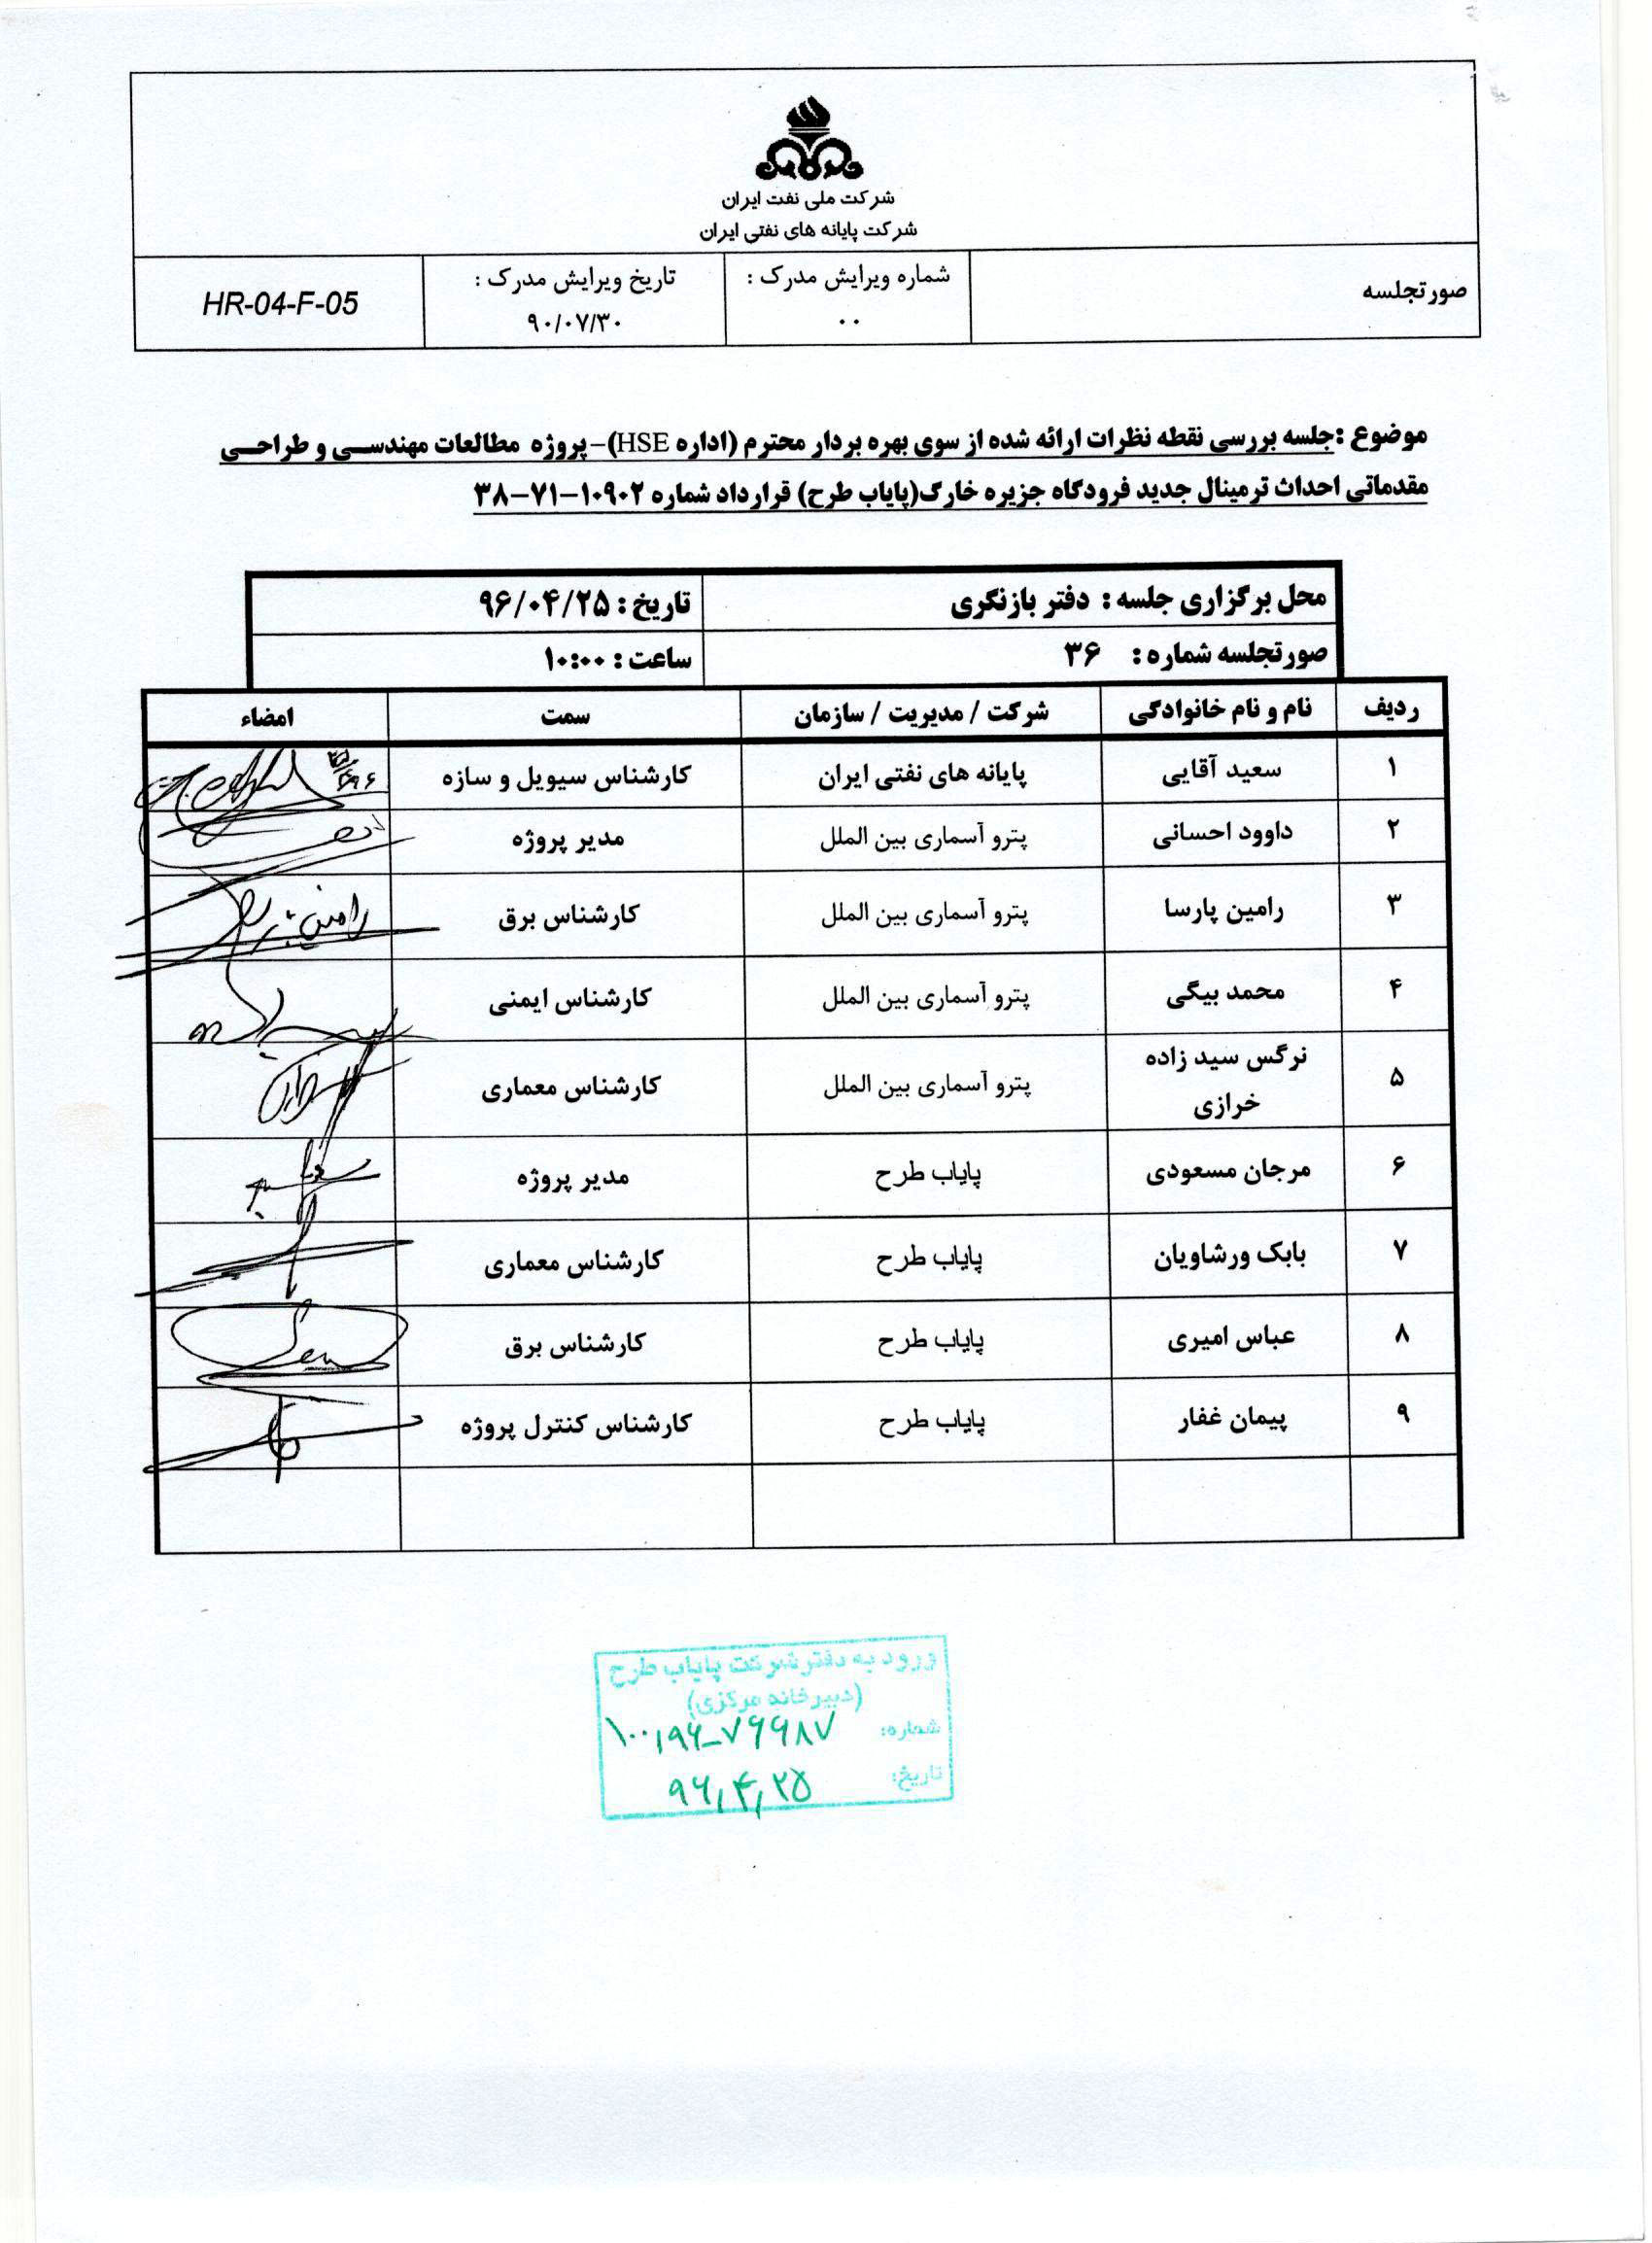 شرکت ملی نفت ایران
شرکت پایانه های نفتی ایران
صورتجلسه
شماره ویرایش مدرک :
۰۰
تاریخ ویرایش مدرک :
۹۰/۰۷/۳۰
HR-04-F-05
موضوع :جلسه بررسی نقطه نظرات ارائه شده از سوی بهره بردار محترم (اداره HSE)–پروژه مطالعات مهندسی و طراحی
مقدماتی احداث ترمینال جدید فرودگاه جزیره خارک(پایاب طرح) قرارداد شماره ۱۰۹۰۲–۷۱–۳۸
محل برگزاری جلسه : دفتر بازنگری
تاریخ : ۹۶/۰۴/۲۵
صورتجلسه شماره : ۳۶
ساعت : ۱۰:۰۰
ردیف نام و نام خانوادگی شرکت / مدیریت / سازمان سمت امضاء
۱ سعید آقایی پایانه های نفتی ایران کارشناس سیویل و سازه
۲ داوود احسانی پترو آسماری بین الملل مدیر پروژه
۳ رامین پارسا پترو آسماری بین الملل کارشناس برق
۴ محمد بیگی پترو آسماری بین الملل کارشناس ایمنی
۵ نرگس سید زاده خرازی پترو آسماری بین الملل کارشناس معماری
۶ مرجان مسعودی پایاب طرح مدیر پروژه
۷ بابک ورشاویان پایاب طرح کارشناس معماری
۸ عباس امیری پایاب طرح کارشناس برق
۹ پیمان غفار پایاب طرح کارشناس کنترل پروژه
ورود به دفتر شرکت پایاب طرح
(دبیرخانه مرکزی)
شماره: ۱۰۰,۹۶-۷۶۶۸۷
تاریخ: ۹۶,۴,۲۵